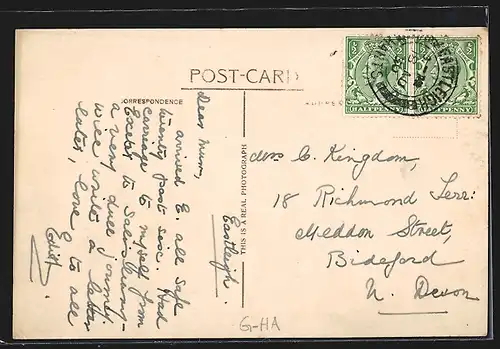 POST-CARD
CORRESPONDENCE
THIS IS A REAL PHOTOGRAPH
EASTLEIGH
HANTS
Eastleigh.
Dear Mum,
arrived E. all safe
twenty past six. Had
carriage to myself from
Exeter to Salisbury -
a very dull journey.
Will write a letter
later, love to all
Edith.
Mrs C. Kingdom,
18 Richmond Terr:
Meddon Street,
Bideford
N. Devon
G-HA